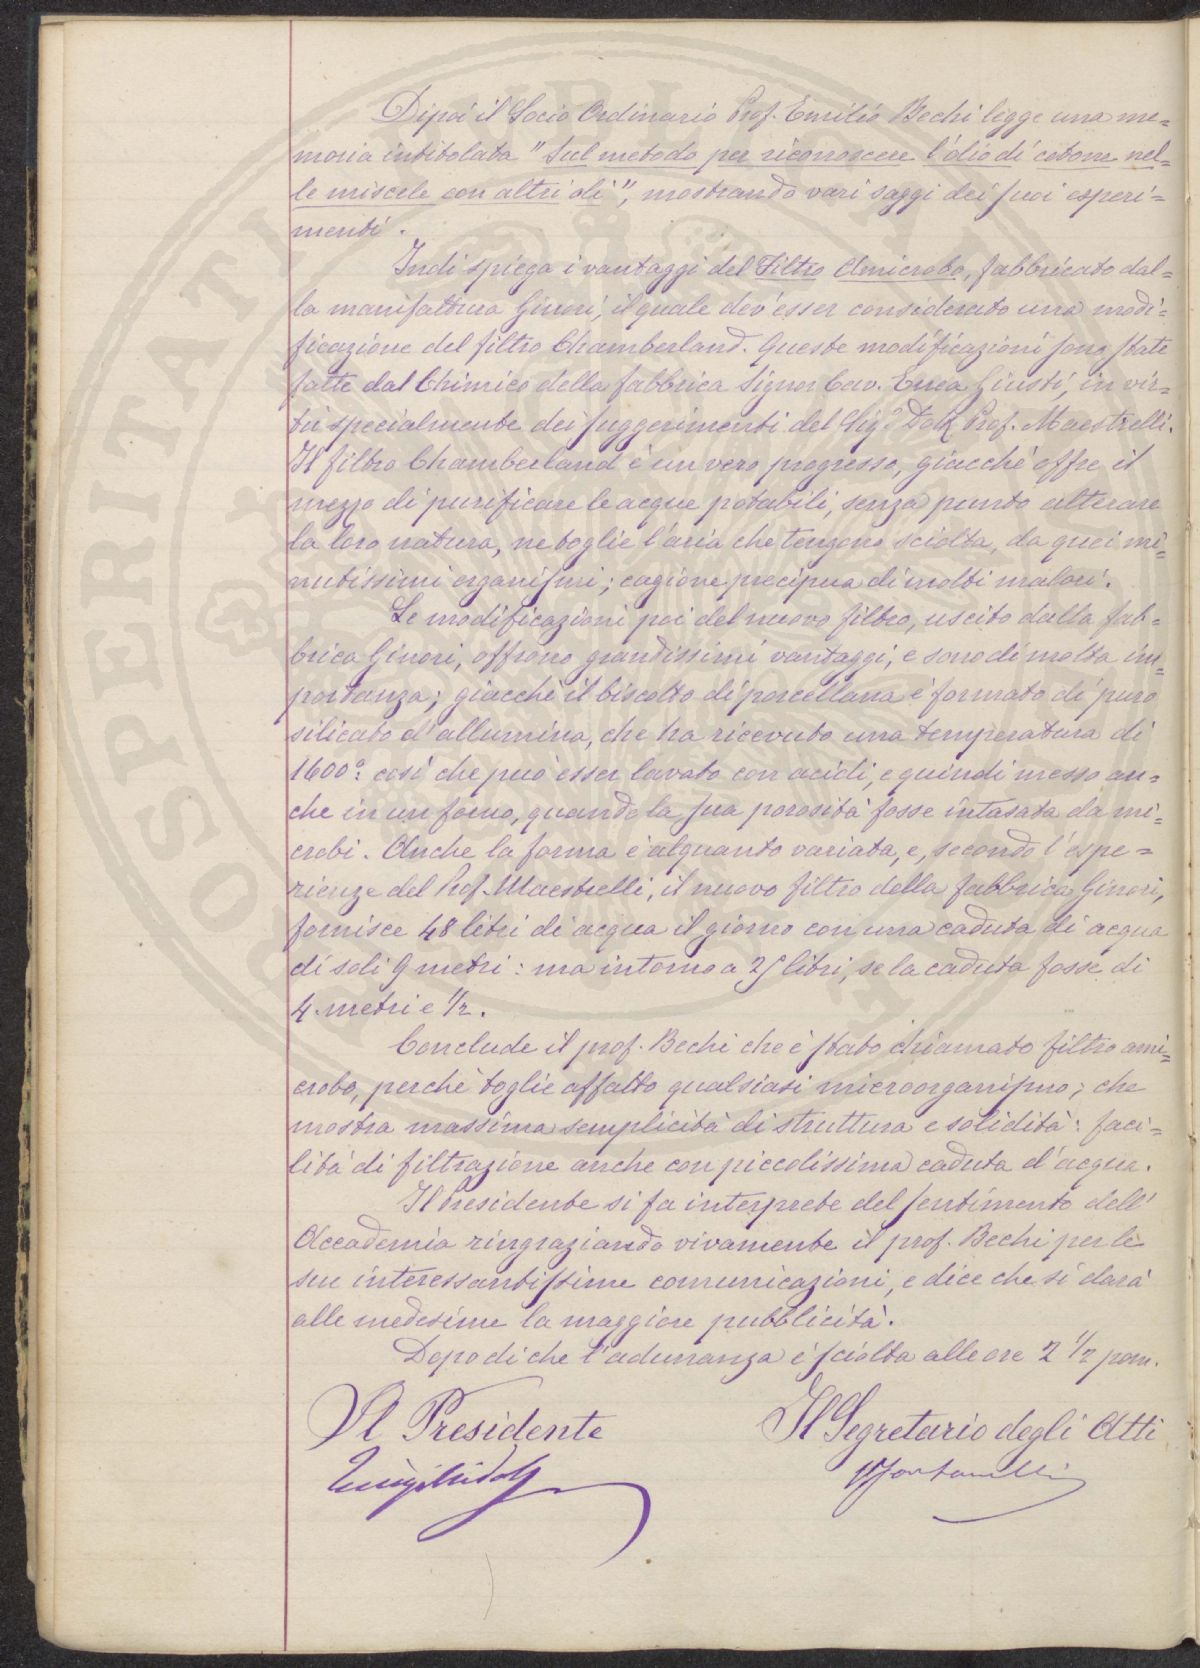 Dipoi il Socio Ordinario Prof. Emilio Bechi legge una me=
moria intitolata "Sul metodo per riconoscere l'olio di cotone nel=
le miscele con altri oli", mostrando vari saggi dei suoi esperi=
menti.
Indi spiega i vantaggi del Filtro Amicrobo, fabbricato dal=
la manifattura Ginori, il quale dev'esser considerato una modi=
ficazione del filtro Chamberland. Queste modificazioni sono state
fatte dal Chimico della fabbrica Signor Cav. Enea Giusti, in vir=
tù specialmente dei suggerimenti del Sig.r Dott. Prof. Maestrelli.
Il filtro Chamberland è un vero progresso, giacchè offre il
mezzo di purificare le acque potabili, senza punto alterare
la loro natura, ne toglie l'aria che tengono sciolta, da quei mi=
nutissimi organismi; cagione precipua di molti malori.
Le modificazioni poi del nuovo filtro, uscito dalla fab=
brica Ginori, offrono grandissimi vantaggi, e sono di molta im=
portanza; giacchè il biscotto di porcellana è formato di puro
silicato d'allumina, che ha ricevuto una temperatura di
1600°: così che può esser lavato con acidi, e quindi messo an=
che in un forno, quando la sua porosità fosse intasata da mi=
crobi. Anche la forma è alquanto variata, e, secondo l'espe=
rienze del Prof. Maestrelli, il nuovo filtro della fabbrica Ginori,
fornisce 48 litri di acqua il giorno con una caduta di acqua
di soli 9 metri: ma intorno a 25 litri, se la caduta fosse di
4 metri e 1/2.
Conclude il prof. Bechi che è stato chiamato filtro ami=
crobo, perchè toglie affatto qualsiasi microorganismo; che
mostra massima semplicità di struttura e solidità: faci=
lità di filtrazione anche con piccolissima caduta d'acqua.
Il Presidente si fa interprete del sentimento dell'
Accademia ringraziando vivamente il prof. Bechi per le
sue interessantissime comunicazioni, e dice che si darà
alle medesime la maggiore pubblicità.
Dopo di che l'adunanza è sciolta alle ore 2 1/2 pom.
Il Presidente
Il Segretario degli Atti
PROSPERITATI PUBLICAE